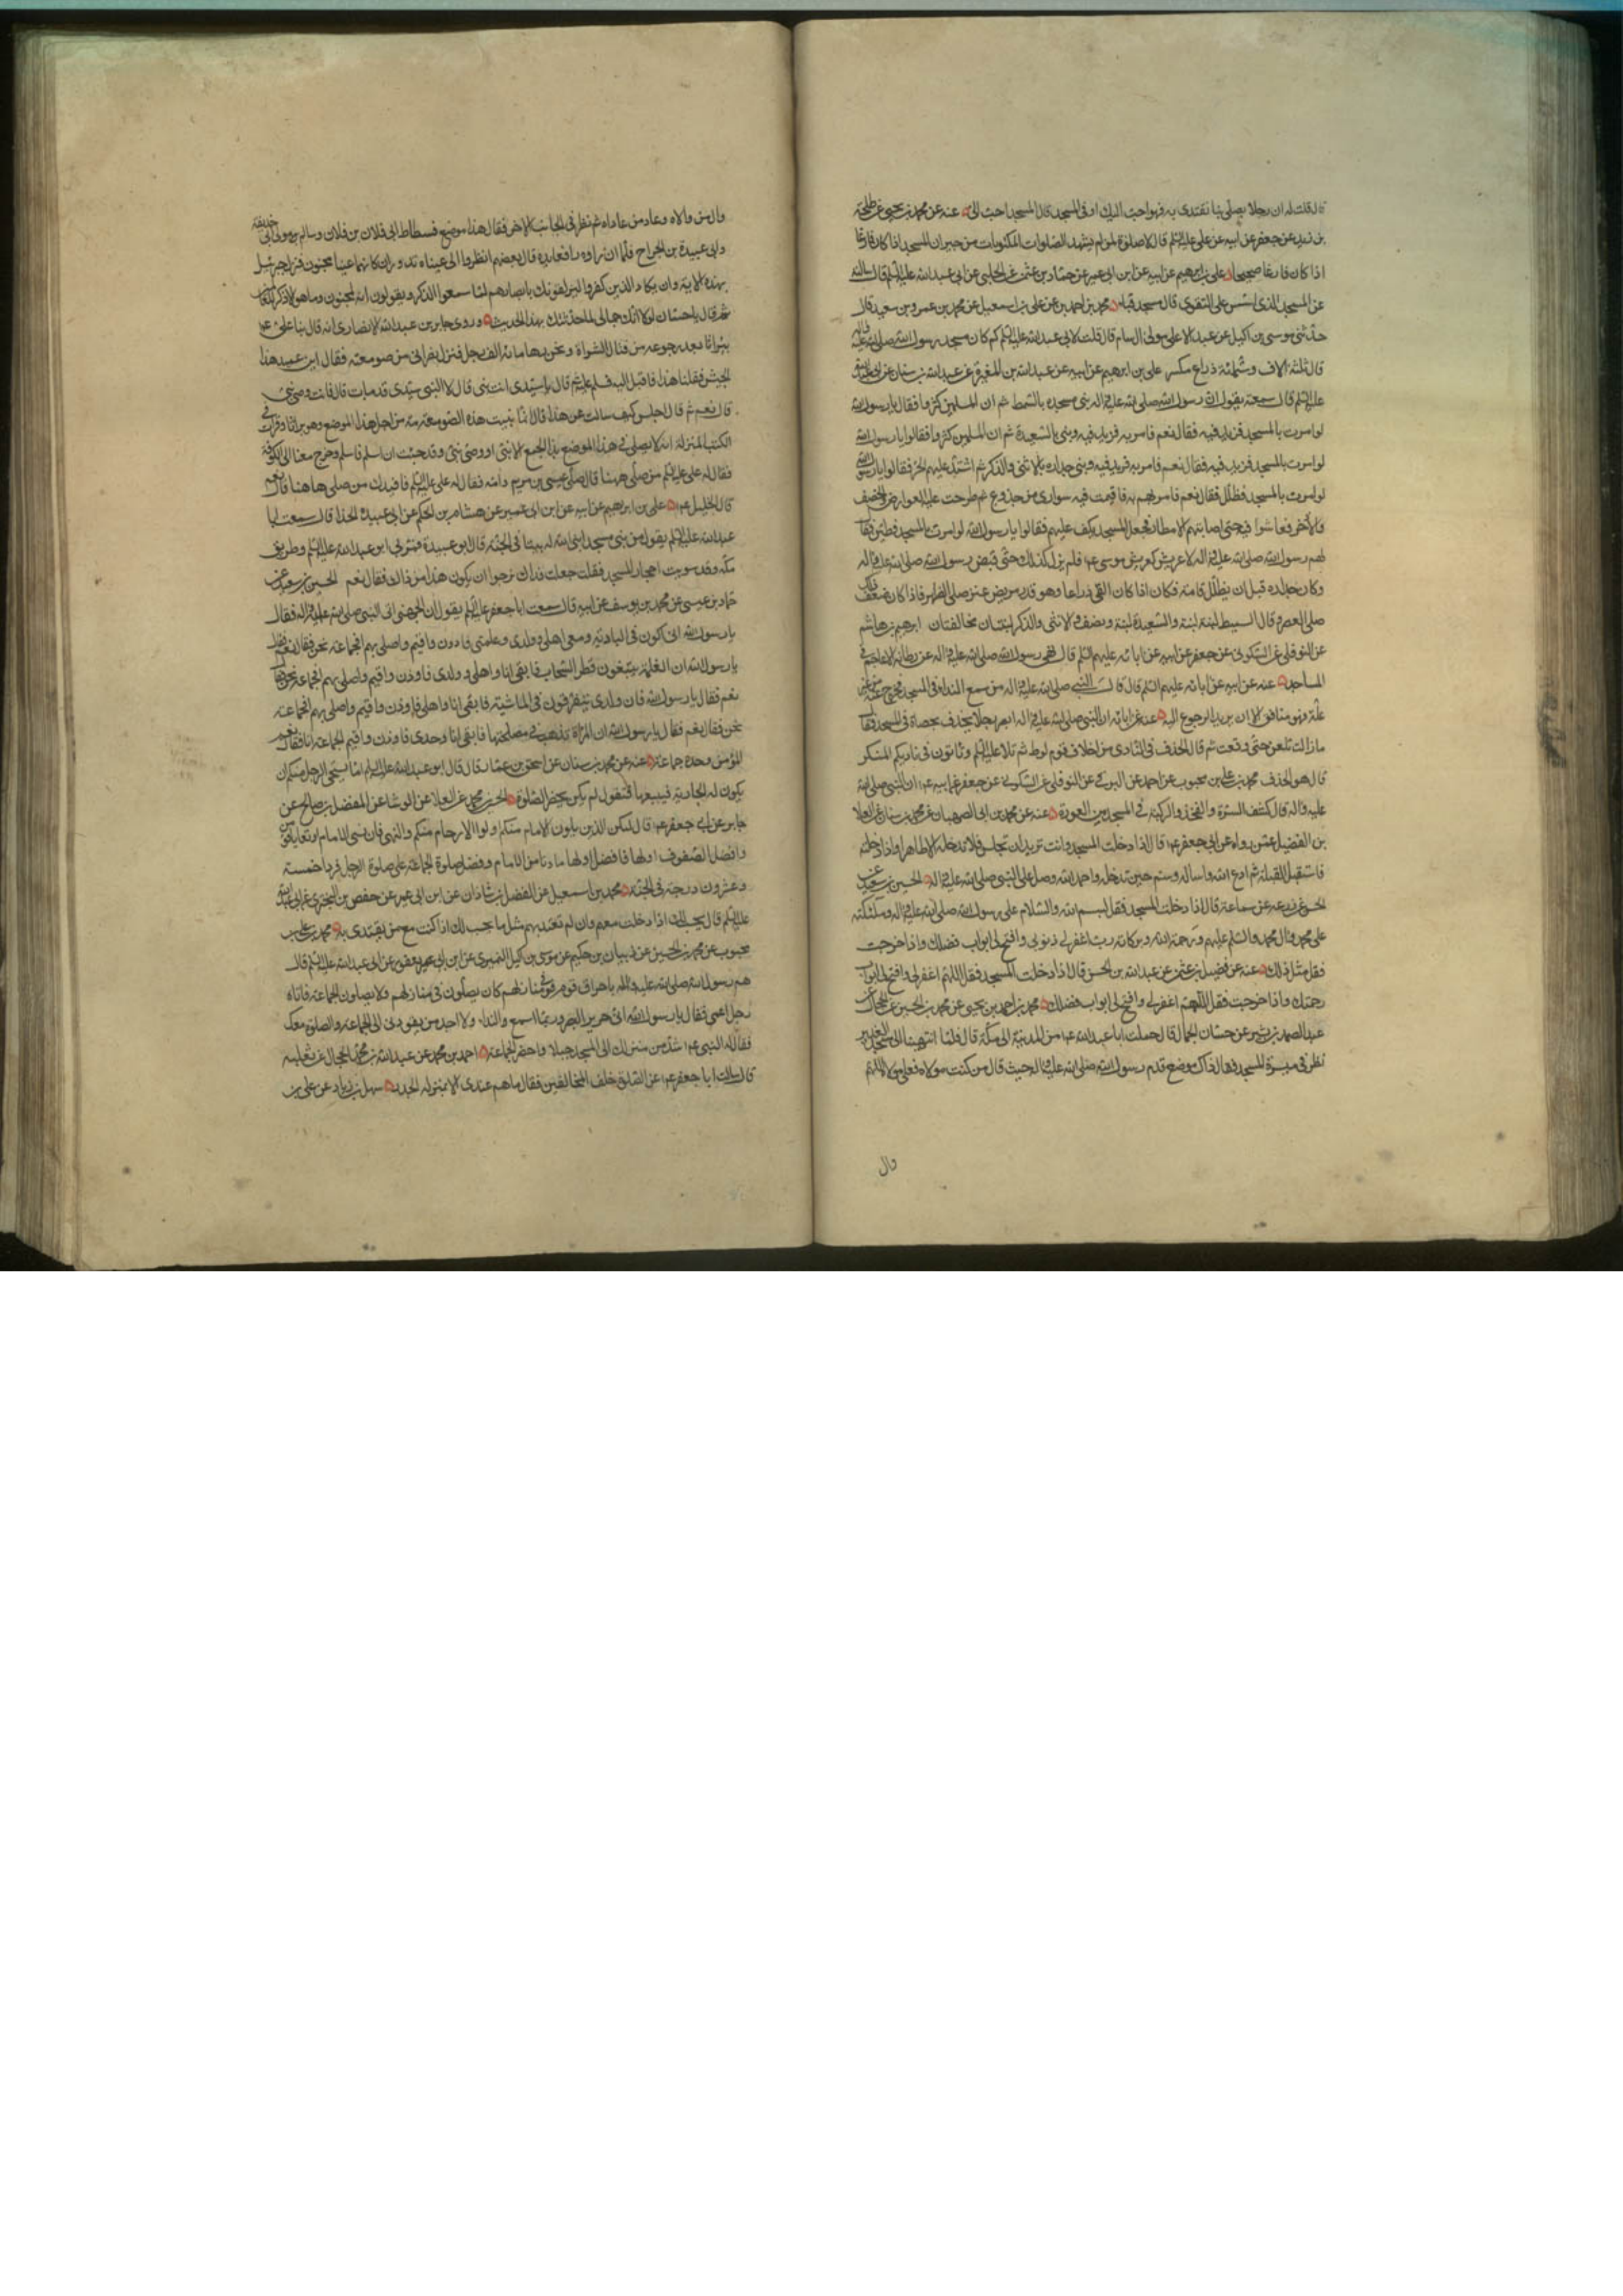 قال قلت له ان رجلا يصلي بنا نقتدى به فهو احب اليك او فى المسجد قال المسجد احب الىّ عنه عن محمد بن يحيى عن طلحة
بن زيد عن جعفر عن ابيه عن على عليه السلم قال لا صلوة لمن لم يشهد الصلوات المكتوبات من جيران المسجد اذا كان فارغا
اذا كان فارغا صحيحا على بن ابرهيم عن ابيه عن ابن ابى عمير عن حماد بن عثمن عن الحلبى عن ابى عبد الله عليه السلم قال سالته
عن المسجد الذى اسس على التقوى قال مسجد قباء محمد بن احمد عن على بن اسمعيل عن محمد بن عمرو بن سعيد قال
حدثنى موسى بن اكيل عن عبد الاعلى مولى ال سام قال قلت لابى عبد الله عليه السلم كم كان مسجد رسول الله صلى الله عليه واله
قال ثلثة الاف وستمائة ذراع مكسر على بن ابرهيم عن ابيه عن عبد الله بن المغيرة عن عبد الله بن سنان عن ابى عبد الله
عليه السلم قال سمعته يقول ان رسول الله صلى الله عليه واله بنى مسجده بالسمط ثم ان المسلمين كثروا فقالوا يا رسول الله
لو امرت بالمسجد فزيد فيه فقال نعم فامر به فزيد فيه وبنى بالسعيدة ثم ان المسلمين كثروا فقالوا يا رسول الله
لو امرت بالمسجد فزيد فيه فقال نعم فامر به فزيد فيه وبنى جداره بالانثى والذكر ثم اشتد عليهم الحر فقالوا يا رسول الله
لو امرت بالمسجد فظلل فقال نعم فامر بهم به فاقيمت فيه سوارى من جذوع ثم طرحت عليه العوارض والخصف
والاذخر فعاشوا فيه حتى اصابتهم الامطار فجعل المسجد يكف عليهم فقالوا يا رسول الله لو امرت بالمسجد فطين فقال
لهم رسول الله صلى الله عليه واله لا عريش كعريش موسى عم فلم يزل كذلك حتى قبض رسول الله صلى الله عليه واله
وكان جداره قبل ان يظلل قامة فكان اذا كان الفئ ذراعا وهو قدر مربض عنز صلى الظهر فاذا كان ضعف ذلك
صلى العصر وقال السميط لبنة لبنة والسعيدة لبنة ونصف والانثى والذكر لبنتان مخالفتان ابرهيم بن هاشم
عن النوفلى عن السكونى عن جعفر عن ابيه عن ابائه عليهم السلم قال نهى رسول الله صلى الله عليه واله عن رطانة الاعاجم فى
المساجد عنه عن ابيه عن ابائه عليهم السلم قال قال النبى صلى الله عليه واله من سمع النداء فى المسجد فخرج عنه من غير
علة فهو منافق الا ان يريد الرجوع اليه عنه عن ابائه ان النبى صلى الله عليه واله ابصر رجلا يخذف بحصاة فى المسجد فقال
ما زالت تلعن حتى وقعت ثم قال الخذف فى النادى من اخلاق قوم لوط ثم تلا عليه السلم وتاتون فى ناديكم المنكر
قال هو الخذف محمد بن على بن محبوب عن احمد عن البرقى عن النوفلى عن السكونى عن جعفر عن ابيه عم ان النبى صلى الله
عليه واله قال كشف السرة والفخذ والركبة فى المسجد من العورة عنه عن محمد بن ابى الصهبان عن محمد بن سنان عن العلا
بن الفضيل عمن رواه عن ابى جعفر عم قال اذا دخلت المسجد وانت تريد ان تجلس فلا تدخله الا طاهرا واذا دخلته
فاستقبل القبلة ثم ادع الله واساله وسم حين تدخله واحمد الله وصل على النبى صلى الله عليه واله الحسين بن سعيد عن
الحسن عن زرعه عن سماعة قال اذا دخلت المسجد فقل بسم الله والسلام على رسول الله صلى الله عليه واله وملئكته
على محمد وال محمد والسلم عليهم ورحمة الله وبركاته رب اغفر لى ذنوبى وافتح لى ابواب فضلك واذا خرجت
فقل مثل ذلك عنه عن فضيل بن عثمن عن عبد الله بن الحسن قال اذا دخلت المسجد فقل اللهم اغفر لى وافتح لى ابواب
رحمتك واذا خرجت فقل اللهم اغفر لى وافتح لى ابواب فضلك محمد بن احمد بن يحيى عن محمد بن الحسين عن الحجال عن
عبد الصمد بن بشير عن حسان الجمال قال حملت ابا عبد الله عم من المدينة الى مكة قال فلما انتهينا الى مسجد الغدير
نظر فى ميسرة المسجد فقال ذاك موضع قدم رسول الله صلى الله عليه واله حيث قال من كنت مولاه فعلى مولاه اللهم
وال
وال من والاه وعاد من عاداه ثم نظر فى الجانب الاخر فقال هذا موضع فسطاط ابى فلان بن فلان وسالم مولى ابى حذيفة
وابى عبيدة بن الجراح فلما ان راوه رافعا يده قال بعضهم انظروا الى عيناه تدوران كانهما عينا مجنون فنزل جبرئيل
بهذه الاية وان يكاد الذين كفروا ليزلقونك بابصارهم لما سمعوا الذكر ويقولون انه لمجنون وما هو الا ذكر للعالمين
ثم قال يا حسان لولا انك جمالى لما حدثتك بهذا الحديث وروى جابر بن عبد الله الانصارى انه قال صلى بنا على عم
ببراثا بعد رجوعه من قتال الشراة ونحن زهاء مائة الف رجل فنزل نصرانى من صومعته فقال اين عميد هذا
الجيش فقلنا هذا فاقبل اليه فسلم عليه ثم قال يا سيدى انت نبى قال لا النبى سيدى قد مات قال فانت وصى نبى
قال نعم ثم قال اجلس كيف سالت عن هذا قال انما بنيت هذه الصومعة من اجل هذا الموضع وهو براثا وقرات فى
الكتب المنزلة انه لا يصلى فى هذا الموضع بذا الجمع الا نبى او وصى نبى وقد جئت ان اسلم فاسلم وخرج معنا الى الكوفة
فقال له على عليه السلم من صلى ههنا قال صلى عيسى بن مريم وامه فقال له على عليه السلم فافيدك من صلى هاهنا قال نعم
قال الخليل عم على بن ابرهيم عن ابيه عن ابن ابى عمير عن هشام بن الحكم عن ابى عبيدة الحذا قال سمعت ابا
عبد الله عليه السلم يقول من بنى مسجدا بنى الله له بيتا فى الجنة قال ابو عبيدة فمر بى ابو عبد الله عليه السلم فى طريق
مكة وقد سويت احجار المسجد فقلت جعلت فداك نرجوا ان يكون هذا من ذاك فقال نعم الحسين بن سعيد عن
حماد بن عيسى عن محمد بن يوسف عن ابيه قال سمعت ابا جعفر عليه السلم يقول ان الجهنى اتى النبى صلى الله عليه واله فقال
يا رسول الله انى اكون فى البادية ومعى اهلى وولدى وغلمتى فاذن واقيم واصلى بهم افجماعة نحن فقال نعم فقال
يا رسول الله ان الغلمة يتبعون قطر السحاب فابقى انا واهلى وولدى فاوذن واقيم واصلى بهم افجماعة نحن فقال
نعم فقال يا رسول الله فان ولدى يتفرقون فى الماشية فابقى انا واهلى فاوذن واقيم واصلى بهم افجماعة
نحن فقال نعم فقال يا رسول الله ان المراة تذهب فى مصلحتها فابقى انا وحدى فاوذن واقيم افجماعة انا فقال نعم
المؤمن وحده جماعة عنه عن محمد بن سنان عن اسحق بن عمار قال قال ابو عبد الله عليه السلم اما يستحى الرجل منكم ان
يكون له الجارية فيبيعها فتقول لم يكن يحضر الصلوة الحسين بن محمد عن المعلا عن الوشا عن المفضل بن صالح عن
جابر عن ابى جعفر عم قال ليكن الذين يلون الامام منكم اولوا الارحام منكم والنهى فان نسى الامام او تعايا قوموه
وافضل الصفوف اولها وافضل اولها ما دنا من الامام وفضل صلوة الجماعة على صلوة الرجل فردا خمسة
وعشرون درجة فى الجنة محمد بن اسمعيل عن الفضل بن شاذان عن ابن ابى عمير عن حفص بن البخترى عن ابى عبد الله
عليه السلم قال يحسب لك اذا دخلت معهم وان لم تقتد بهم مثل ما يحسب لك اذا كنت مع من يقتدى به محمد بن على بن
محبوب عن محمد بن الحسين عن ذبيان بن حكيم عن موسى بن اكيل النميرى عن ابن ابى يعفور عن ابى عبد الله عليه السلم قال
هم رسول الله صلى الله عليه واله باحراق قوم فى منازلهم كان يصلون فى منازلهم ولا يصلون الجماعة فاتاه
رجل اعمى فقال يا رسول الله انى ضرير البصر وربما اسمع النداء ولا اجد من يقودنى الى الجماعة والصلوة معك
فقال له النبى عم شد من منزلك الى المسجد حبلا واحضر الجماعة احمد بن محمد عن عبد الله بن محمد الحجال عن ثعلبة
قال سالت ابا جعفر عم عن الصلوة خلف المخالفين فقال ما هم عندى الا بمنزلة الجدر سهل بن زياد عن على بن